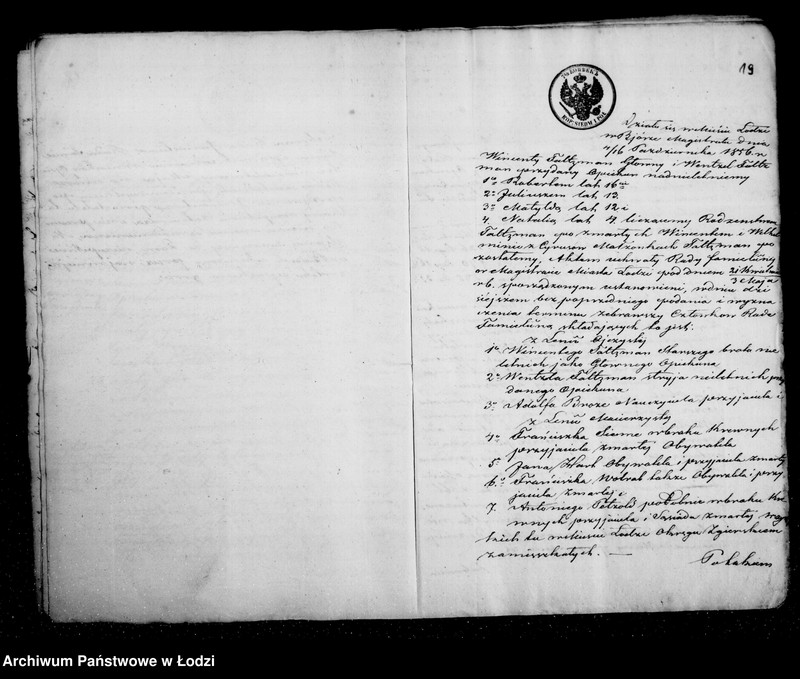 19
Działo się w Mieście Łodzi
w Biórze Magistratu dnia
4/16 Października 1856 r.
Wincenty Sältzman Głowny i Wentzel Sältz
man przydany Opiekun nadnieletniemi
1o Robertem lat 16
2o Juliuszem lat 13
3o Matyldą lat 12 i
4. Natalią lat 4 liczącemi Rodzeństwem
Sältzman po zmartych Wincentem i Wilhel
minie z Małżonkach Sältzman po
zostałemi, Aktem uchwały Rady Familijnej
w Magistracie Miasta Łodzi pod dniem 21 Kwietnia
3 Maja
r. b. sporządzonym ustanowieni, w dniu dzi
siejszem bez poprzedniego podania i wyzna
czenia terminu zebrawszy Członkow Rade
Familijną składających to jest:
z Linii Ojczystej
1o Wincentego Sältzman Starszego brata nie
letnich jako Głownego Opiekuna
2o Wentzla Sältzman stryja nieletnich przy
danego Opiekuna
3o Adolfa Nauczyciela przyjaciela i
z Linii Macierzystej
4o Franciszka w braku Krewnych
przyjaciela zmartej Obywatela
5. Jana Obywatela i przyjaciela zmartej
6o Franciszka także Obywatela i przy
jaciela zmartej i
7. Antoniego podobnie w braku Kre
wnych przyjaciela i Sąsiada zmartej wszy
tkich tu w Mieście Łodzi Okręgu Zgierskiem
zamieszkałych. —
Archiwum Państwowe w Łodzi